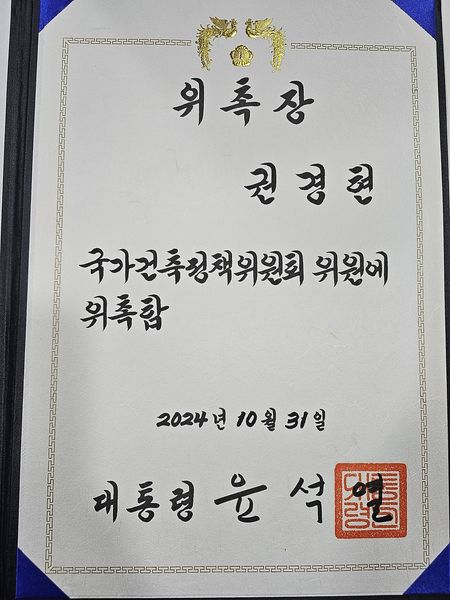 위촉장
권경현
국가건축정책위원회 위원에
위촉함
2024년 10월 31일
대통령 윤석열